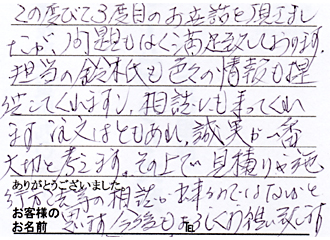 この度びで3度目のお立話を頂きまし
たが、何題もなく満足致しております
担当の鈴木氏も色々の情報も提
供してくれますし、相談にも乗ってくれ
ます。注文はともあれ、誠実が一番
大切と考えます。その上で見積りや施
ありがとうございました。
工等の相談が出来るのではないかと
お客様の
思います 今後もよろしくお願い致します
お名前